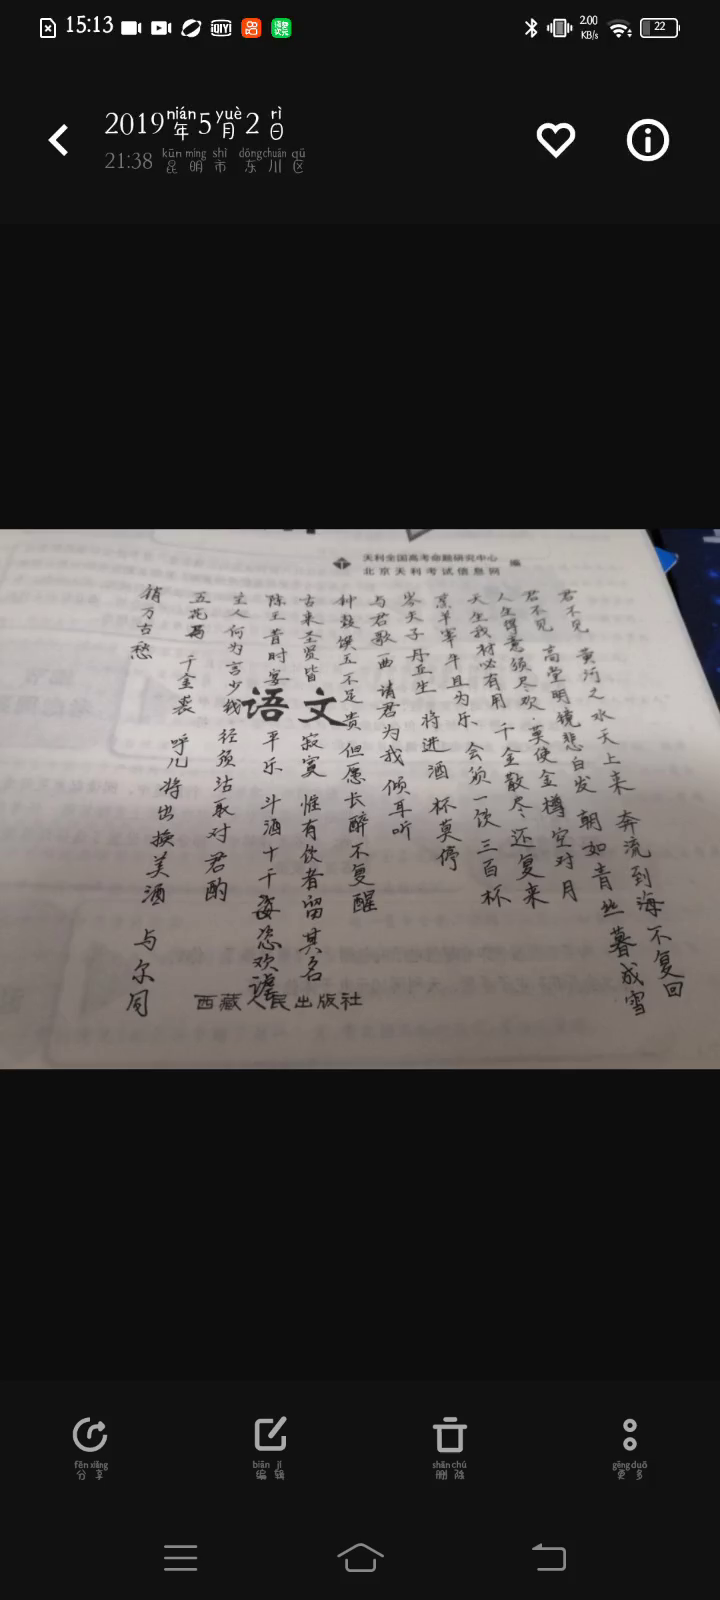 15:13
2.00
KB/s
22
nián yuè rì
2019年5月2日
kūn míng shì dōngchuān qū
21:38 昆明市东川区
天利全国高考命题研究中心
北京天利考试信息网 编
语文
君不见 黄河之水天上来 奔流到海不复回
君不见 高堂明镜悲白发 朝如青丝暮成雪
人生得意须尽欢 莫使金樽空对月
天生我材必有用 千金散尽还复来
烹羊宰牛且为乐 会须一饮三百杯
岑夫子 丹丘生 将进酒 杯莫停
与君歌一曲 请君为我倾耳听
钟鼓馔玉不足贵 但愿长醉不复醒
古来圣贤皆寂寞 惟有饮者留其名
陈王昔时宴平乐 斗酒十千恣欢谑
主人何为言少钱 径须沽取对君酌
五花马 千金裘 呼儿将出换美酒 与尔同
销万古愁
西藏人民出版社
fēn xiǎng
分享
biān jí
编辑
shān chú
删除
gèng duō
更多